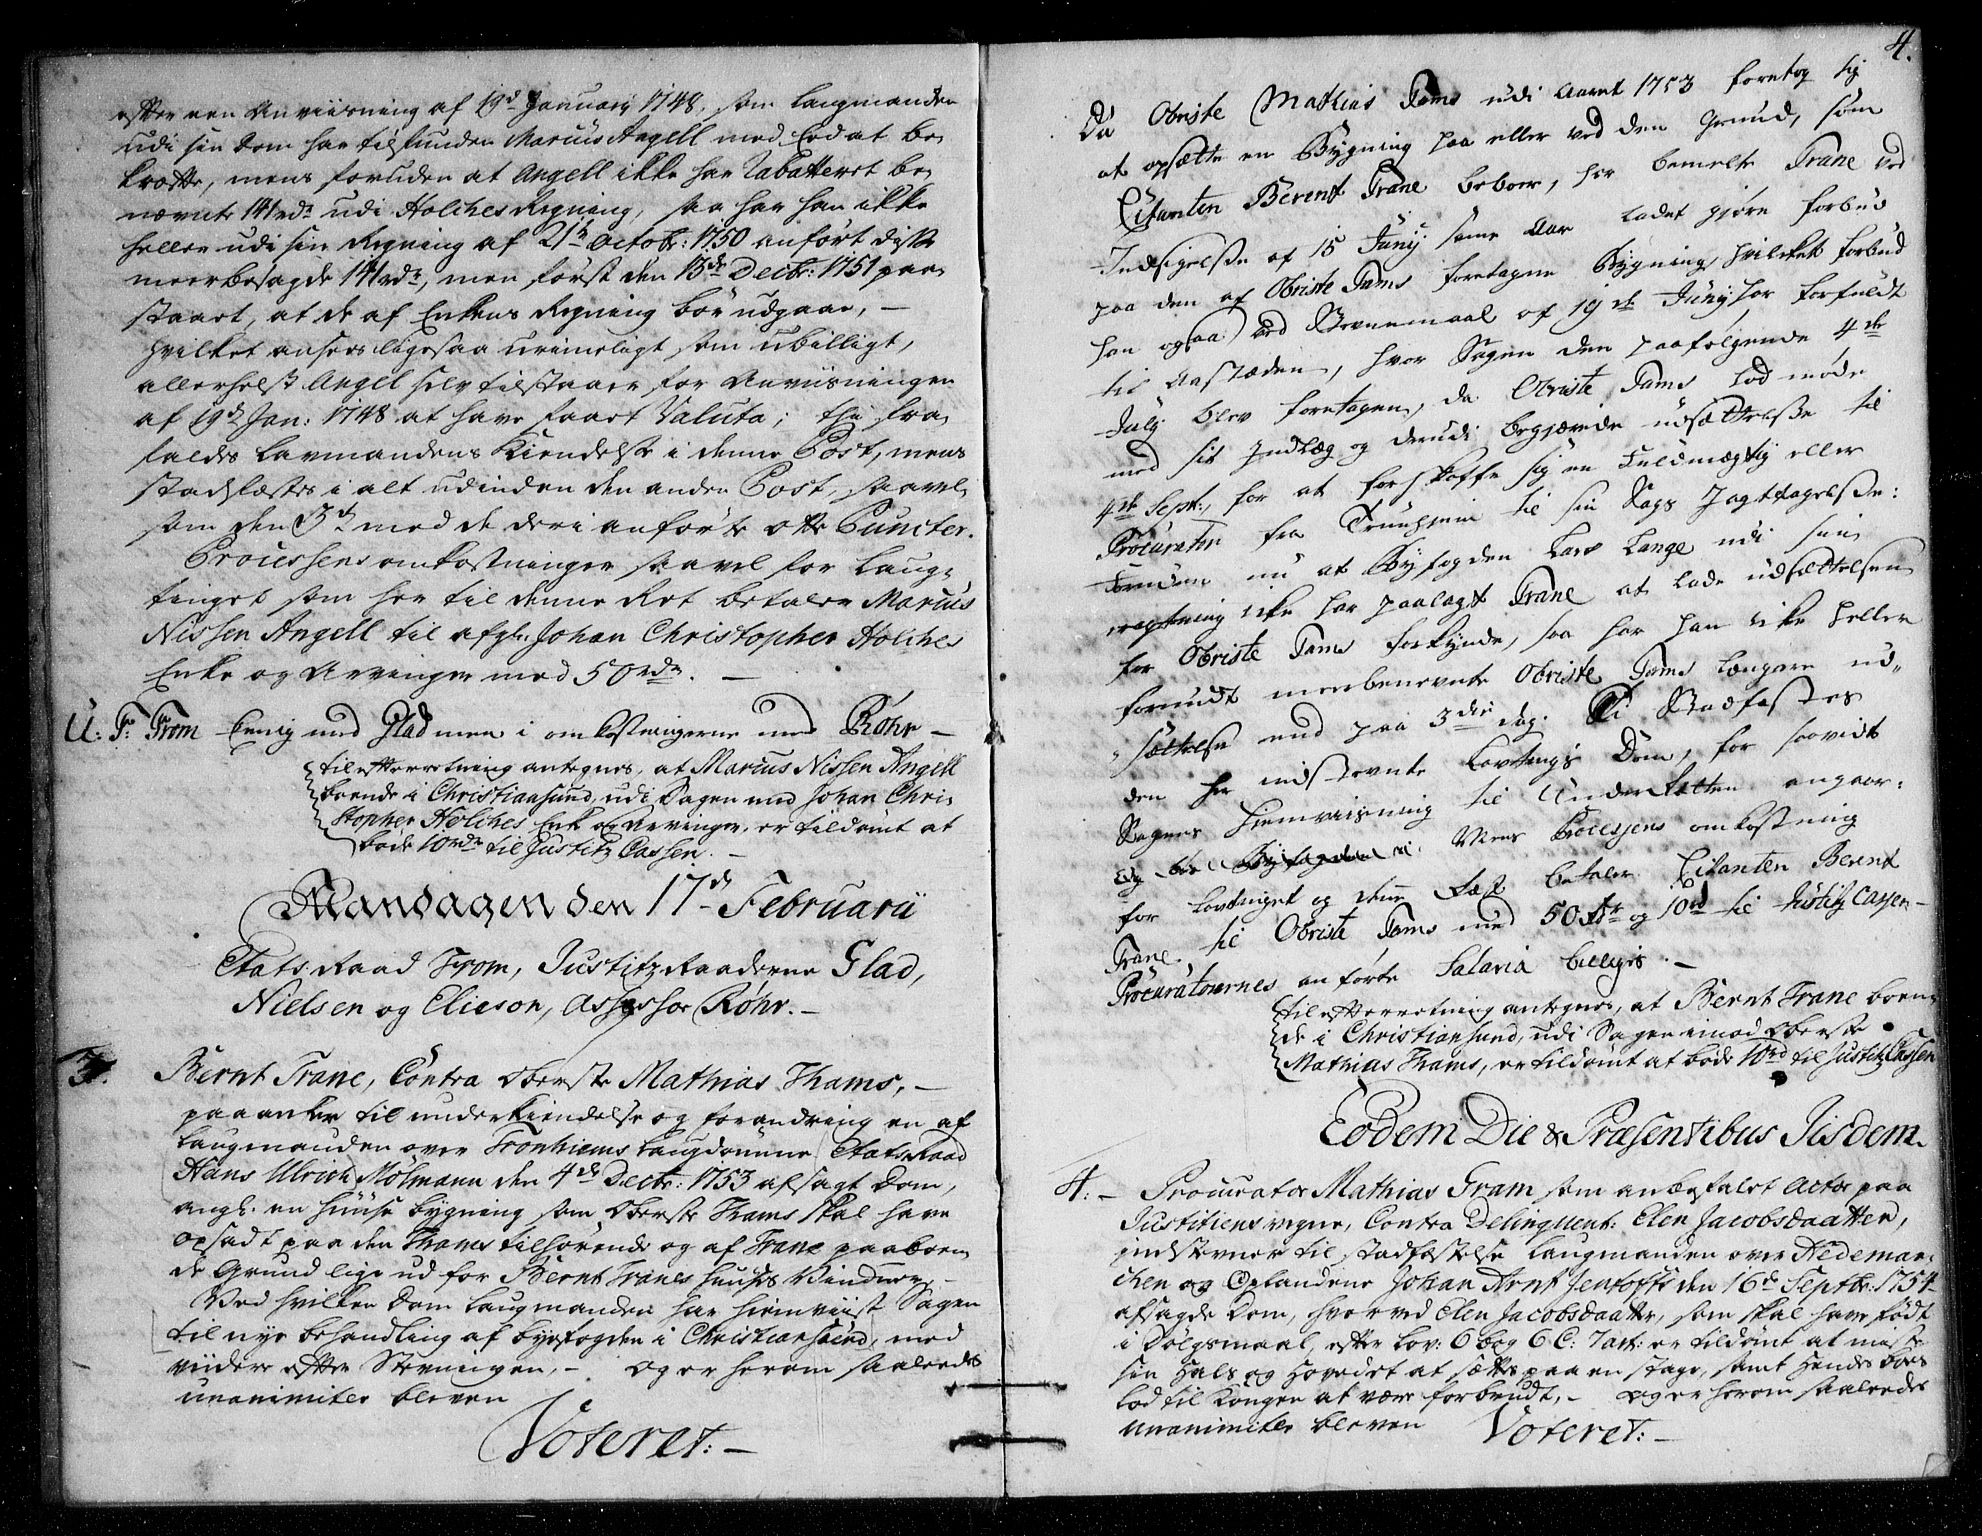 efter een Anviisning af 19d January 1748, som Laugmanden
udi sin Dom har tilfunden Marcus Angell med Eed at be-
kræfte, mens foruden at Angell ikke har Rabatteret be-
nævnte 141rdr udi Holckes Regning, saa har han ikke
heller udi sin Regning af 21de Octobr: 1750 anført disse
meerbesagde 141rdr, men først den 13de Decbr: 1751 paa-
staaet, at de af Enkens Regning bör udgaae, -
hvilket ansees ligesaa urimeligt som ubilligt,
allerhelst Angel selv tilstaaer for Anviisningen
af 19d Jan: 1748 at have faaet Valuta; thi fra-
faldes Lavmandens Kiendelse i denne Post, mens
stadfæstes i alt udi den anden Post, saavel
som den 3de med de deri anförte otte Puncter.
Processens omkostninger saavel for Laug-
tinget som her til denne Ret betaler Marcus
Nissen Angell til afgl. Johan Christopher Holches
Enke og Arvinger med 50rdr. -
U: F: From Eenig med Glad men i omkostningerne med Røhr -
til efterretning antegnes, at Marcus Nissen Angell
boende i Christiansund, udi Sagen mod Johan Chri-
stopher Holches Enke og Arvinger, er tildömt at
böde 10rdr til Justitz Cassen. -
Mandagen den 17de Februarii
Etats Raad From, Justitz Raaderne Glad,
Nielsen og Elieson, Assessor Røhr. -
3. Bernt Trane, Contra Oberste Mathias Thams, -
paaanker til underkiendelse og forandring en af
Laugmanden over Tronhiems Laugdømme Etats Raad
Hans Ulrich Mölmann den 4de Decbr: 1753 afsagt Dom,
angl. en huuse bygning som Oberste Thams skal have
opsadt paa den Thams tilhörende og af Trane paaboen-
de Grund lige ud for Bernt Tranes huuses Vinduer, -
Ved hvilken Dom Laugmanden har hiemviist Sagen
til nye behandling af byefogden i Christiansund, med
viidere efter Stevningen, - og er herom saaledes
unanimiter bleven
Voteret: -
4.
Da Obriste Mathias Tams udi Aaret 1753 foretog sig
at opsætte en Bygning paa eller ved den Grund, som
Citanten Berent Trane beboer, har bemelte Trane ved
Indsigelse af 15 Junij samme Aar ladet giøre forbud
paa den af Obriste Tams foretagne Bygning, hvilket forbud
han ogsaa ved Stevnemaal af 19de Junij har forfuldt
til Aastæden, hvor Sagen den paafølgende 4de
Julij blev foretagen, da Obriste Tams lod møde
med sit Indlæg og derudi begjærede udsættelse til
4de Sept:, for at forskaffe sig en Fuldmægtig eller
Procurator fra Trunhjem til sin Sags Jagttagelse:
nu at Byfogden Lars Lange udi sin
ragtning ikke har paalagt Trane at lade udsættelsen
for Obriste Tams forkynde, saa har han ikke heller
forundt meerbenevnte Obriste Tams længere ud-
sættelse end paa 3die dag. Thi Stadfæstes
den her indstevnte Lavtings Dom, for saavidt
Sagens Hiemviisning til Underrætten angaar.
Mens Processens omkostning
for Lavtinget og denne Ræt betaler Citanten Berent
Trane til Obriste Tams med 50 rdr og 10rd til Justitz Cassen -
Procuratorernes anførte Salaria billiges. -
til efterretning antegnes, at Bernt Trane boen-
de i Christiansund, udi Sagen imod Oberste
Mathias Thams, er tildömt at böde 10rd til Justitz Cassen
Eodem Die & Præsentibus Iisdem.
4. - Procurator Mathias Gram som anbefalet Actor paa
Justitiens vegne, Contra Delinquent: Elen Jacobsdaatter,
indstevner til stadfæstelse Laugmanden over Hedemar-
chen og Oplandene Johan Arnt Jentofts den 16de Septbr: 1754
afsagde Dom, hvorved Elen Jacobsdaatter, som skal have födt
i Dölgsmaal, efter Lov: 6 bog 6 C: 7 art: er tildömt at miste
sin Hals og Hovedet at sættes paa en stage, samt Hendes boes
lod til Kongen at være forbrudt, - og er herom saaledes
unanimiter bleven Voteret: -